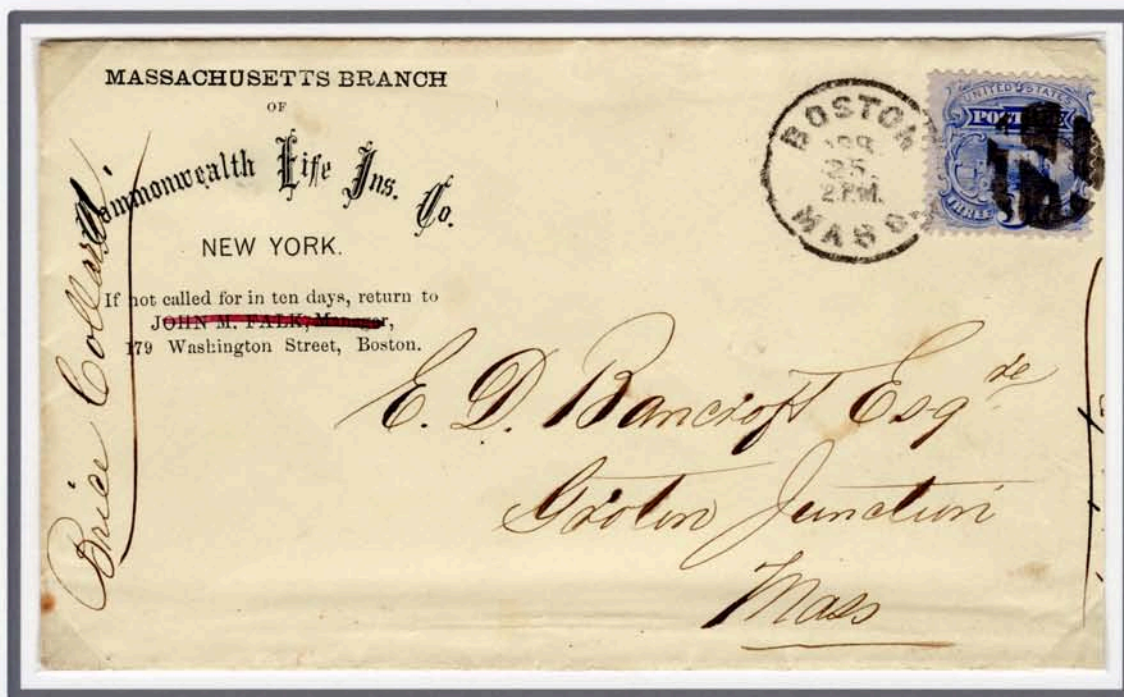 MASSACHUSETTS BRANCH
OF
Commonwealth Life Ins. Co.
NEW YORK.
If not called for in ten days, return to
JOHN M. FALK, Manager,
179 Washington Street, Boston.
Brice Collard.
BOSTON
25.
2 P.M.
MASS.
UNITED STATES
POSTAGE
THREE
E. D. Bancroft Esqre
Groton Junction
Mass